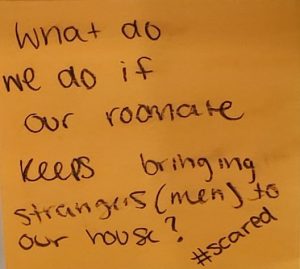 What do
we do if
our roomate
keeps bringing
strangers (men) to
our house?
#scared